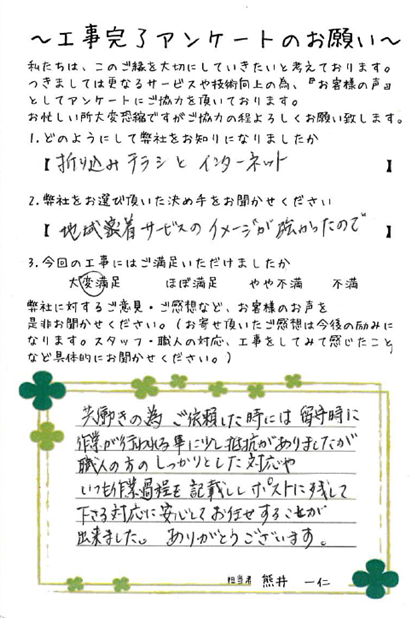 ～工事完了アンケートのお願い～
私たちは、このご縁を大切にしていきたいと考えております。
つきましては更なるサービスや技術向上の為、『お客様の声』
としてアンケートにご協力を頂いております。
お忙しい所大変恐縮ですがご協力の程よろしくお願い致します。
1.どのようにして弊社をお知りになりましたか
【 折り込みチラシと インターネット 】
2.弊社をお選び頂いた決め手をお聞かせください
【 地域密着サービスのイメージが強かったので 】
3.今回の工事にはご満足いただけましたか
大変満足 ほぼ満足 やや不満 不満
弊社に対するご意見・ご感想など、お客様のお声を
是非お聞かせください。(お寄せ頂いたご感想は今後の励みに
なります。スタッフ・職人の対応、工事をしてみて感じたこと
など具体的にお聞かせください。)
共働きの為 ご依頼した時には 留守時に
作業が行われる事に少し抵抗がありましたが
職人の方の しっかりとした対応や
いつも作業過程を記載しポストに残して
下さる対応に安心してお任せすることが
出来ました。 ありがとうございます。
担当者 熊井 一仁